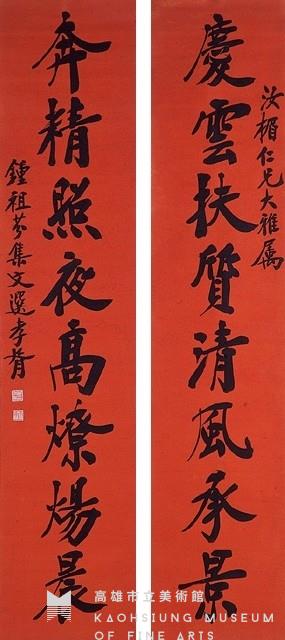 汝楣仁兄大雅属
慶雲扶質清風承景
奔精照夜高燎煬晨
鍾祖芬集文選孝胥
高雄市立美術館
KAOHSIUNG MUSEUM
OF FINE ARTS